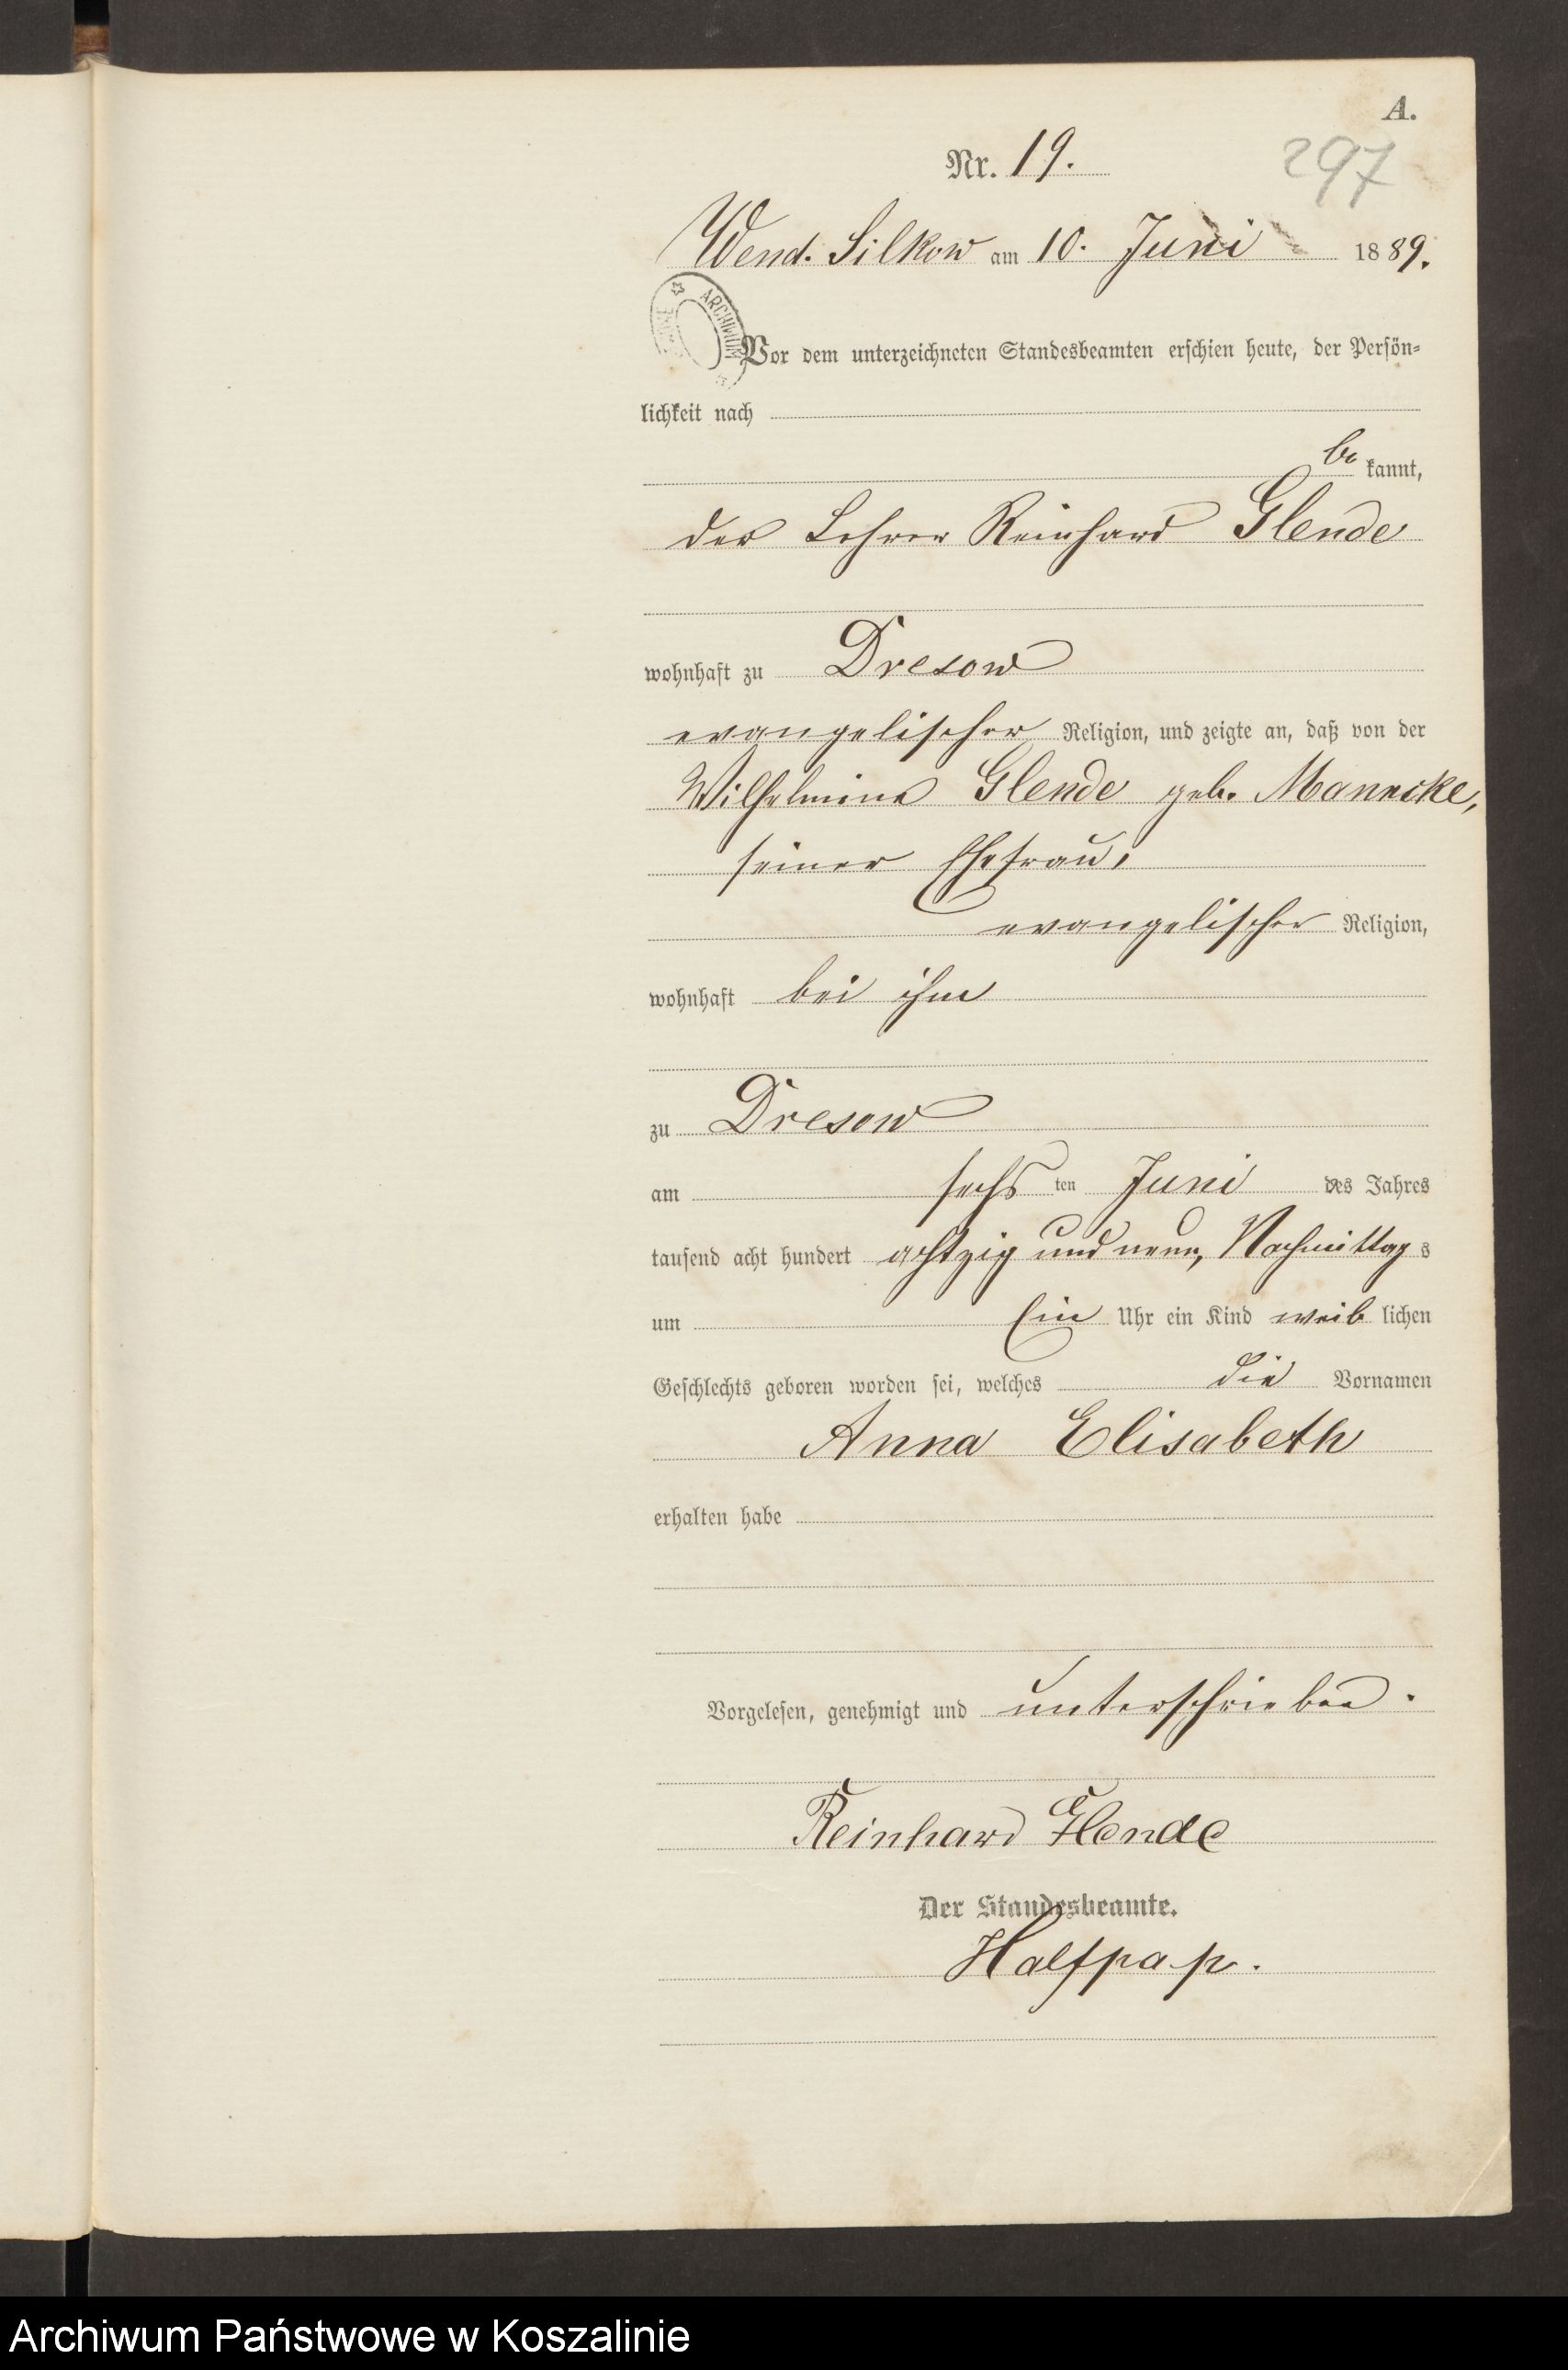 A.
Nr. 19.
297
Wend. Silkow am 10. Juni 1889.
ARCHIWUM
Vor dem unterzeichneten Standesbeamten erschien heute, der Persön-
lichkeit nach
be kannt,
der Lehrer Reinhard Glende
wohnhaft zu Dresow
evangelischer Religion, und zeigte an, daß von der
Wilhelmine Glende geb. Manncke,
seiner Ehefrau,
evangelischer Religion,
wohnhaft bei ihm
zu Dresow
am sechs ten Juni des Jahres
tausend acht hundert achtzig und neun, Nachmittag s
um Ein Uhr ein Kind weib lichen
Geschlechts geboren worden sei, welches die Vornamen
Anna Elisabeth
erhalten habe
Vorgelesen, genehmigt und unterschrieben.
Reinhard Glende
Der Standesbeamte.
Halfpap.
Archiwum Państwowe w Koszalinie